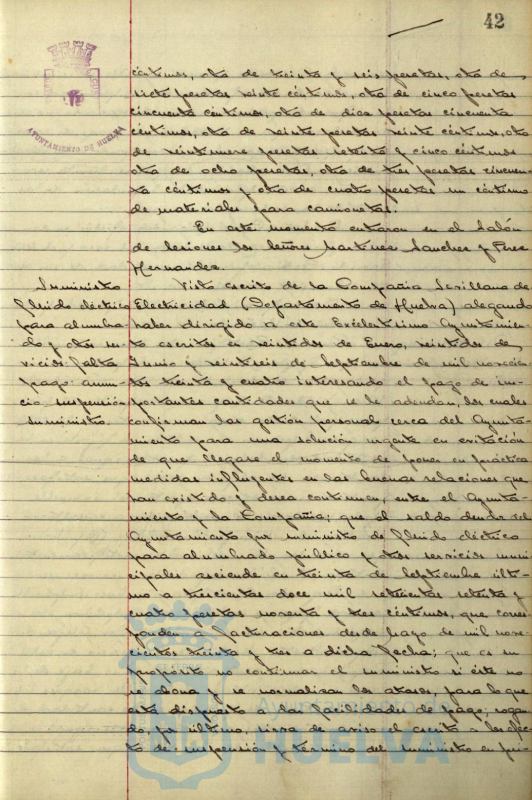 42
AYUNTAMIENTO DE HUELVA
céntimos, otra de treinta y seis pesetas, otra de
siete pesetas veinte céntimos, otra de cinco pesetas
cincuenta céntimos, otra de diez pesetas cincuenta
céntimos, otra de veinte pesetas veinte céntimos, otra
de veintinueve pesetas setenta y cinco céntimos
otra de ocho pesetas, otra de tres pesetas cincuen-
ta céntimos y otra de cuatro pesetas un céntimo
de materiales para camionetas.
En este momento entraron en el Salón
de Sesiones los Señores Martinez Sanchez y Perez
Hernandez.
Suministro
fluido eléctrico
para alumbra-
do y otros ser-
vicios: falta
pago: anun-
cio suspensión
suministro.
Visto escrito de la Compañía Sevillana de
Electricidad (Departamento de Huelva) alegando
haber dirigido a este Excelentísimo Ayuntamien-
to escritos en veintidos de Enero, veintidos de
Junio y veintiseis de Septiembre de mil novecien-
tos treinta y cuatro interesando el pago de im-
portantes cantidades que se le adeudan, los cuales
confirman las gestión personal cerca del Ayunta-
miento para una solución urgente en evitación
de que llegase el momento de poner en práctica
medidas influyentes en las buenas relaciones que
han existido y desea continuen, entre el Ayunta-
miento y la Compañía; que el saldo deudor del
Ayuntamiento por suministro de fluido eléctrico
para alumbrado público y otros servicios muni-
cipales asciende en treinta de Septiembre últi-
mo a trescientas doce mil setecientas setenta y
cuatro pesetas noventa y tres céntimos, que corres-
ponden a facturaciones desde Mayo de mil nove-
cientos treinta y tres a dicha fecha; que es su
propósito no continuar el suministro si éste no
se abona y se normalizan los atrasos, para lo que
está dispuesto a dar facilidades de pago; rogan-
do, por último, sirva de aviso el escrito a los efec-
to de suspensión y término del suministro en pri-
Ayuntamiento de
HUELVA